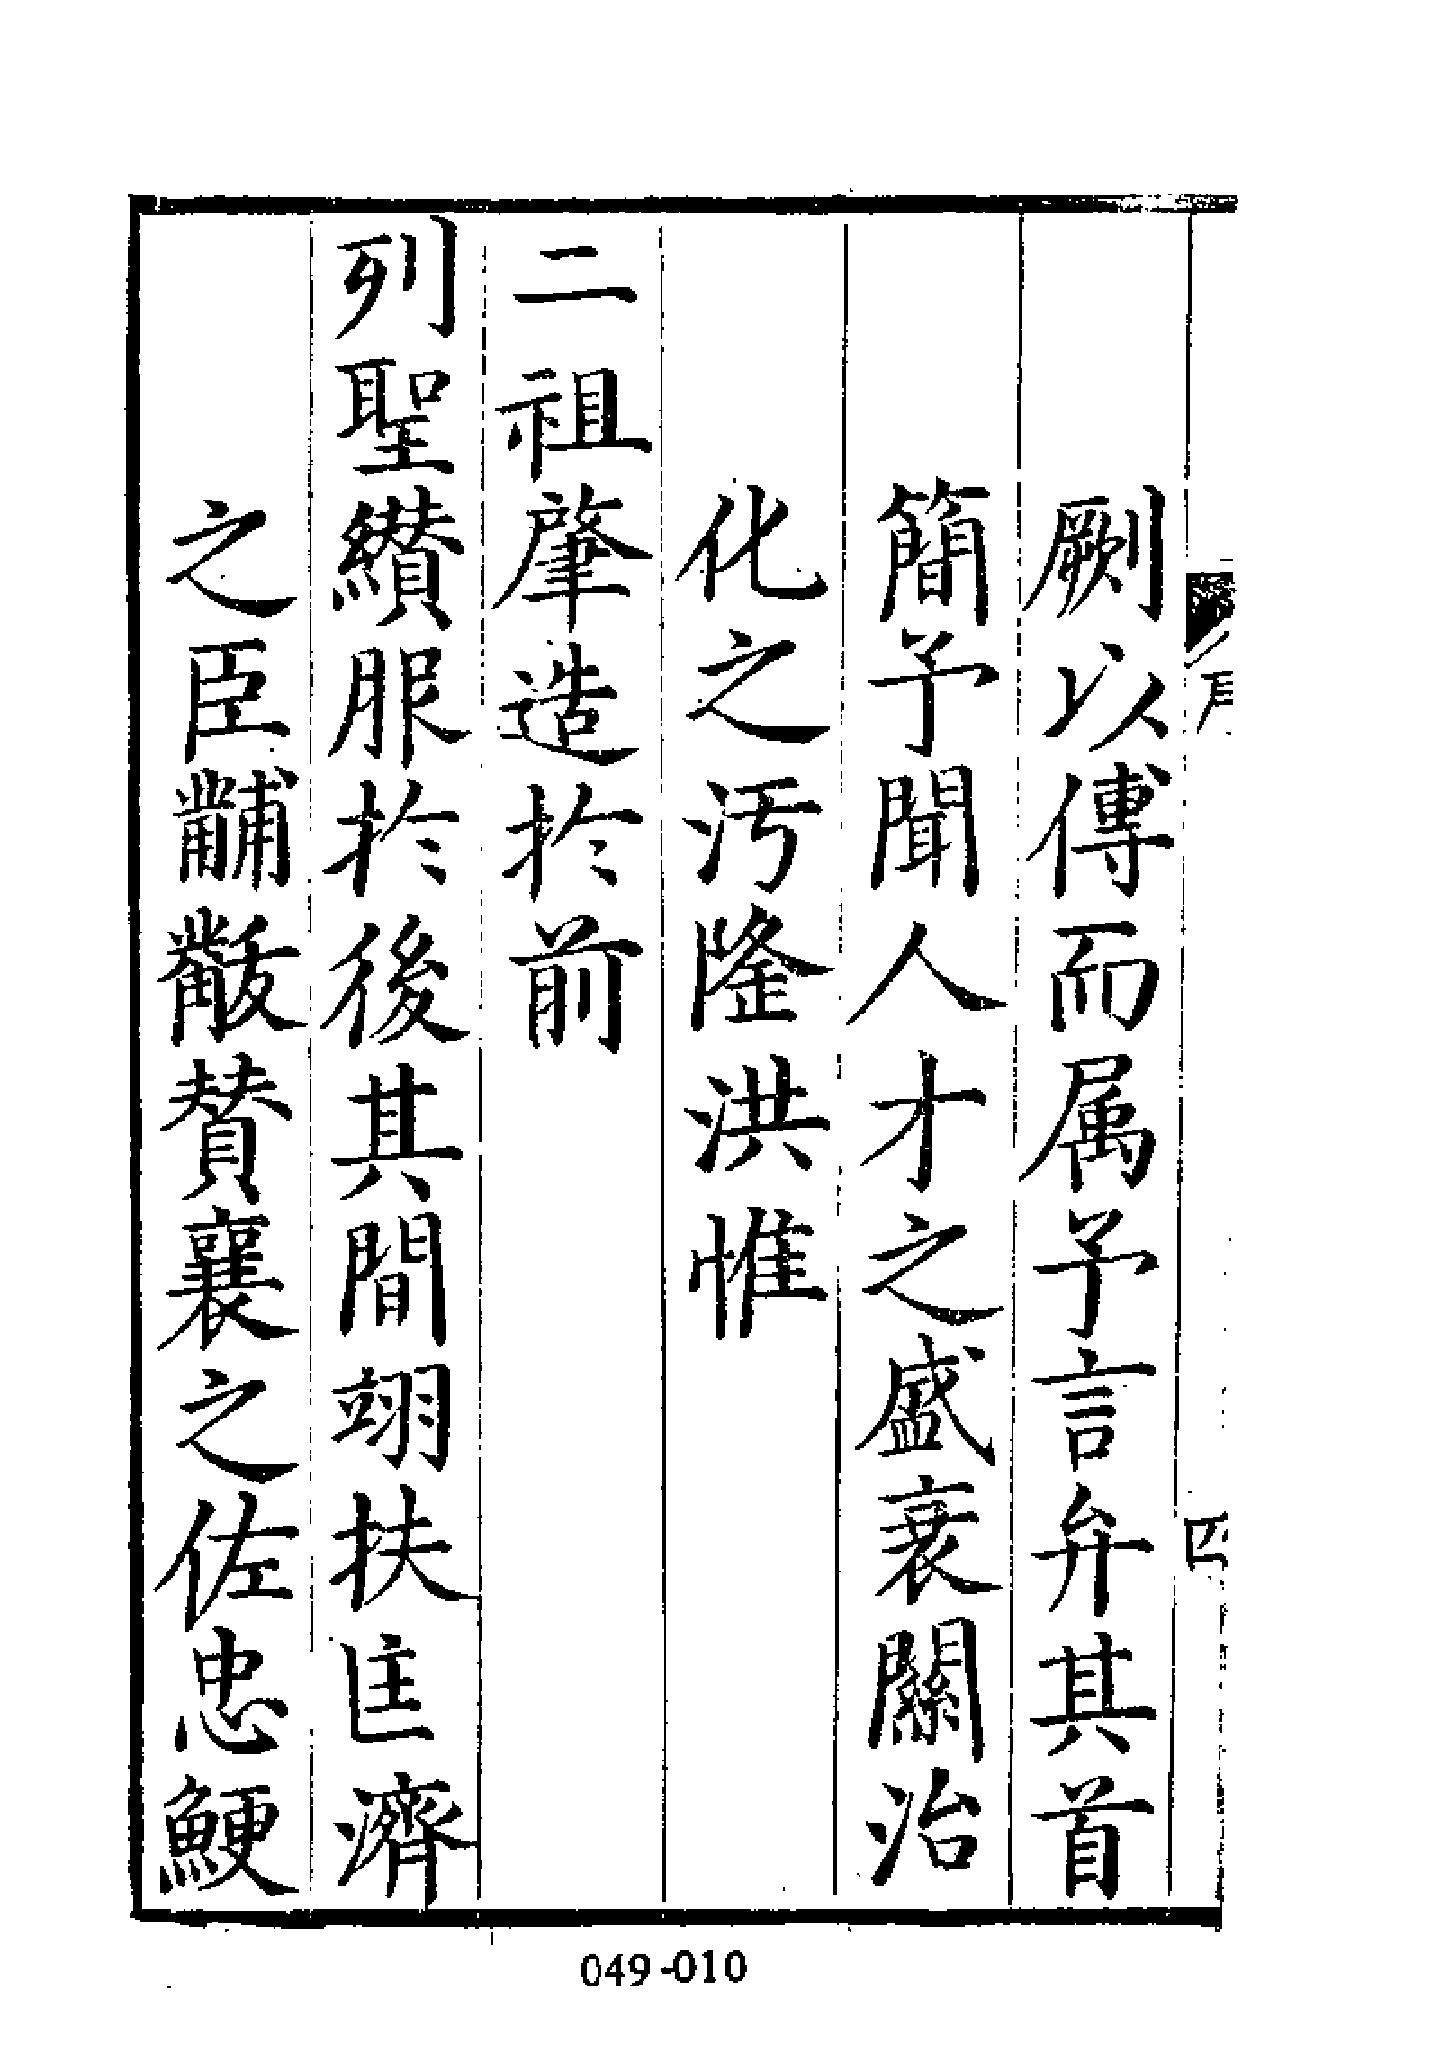 劂以傳而属予言弁其首
簡予聞人才之盛衰關治
化之汚隆洪惟
二祖肇造於前
列聖纘服於後其間翊扶匡濟
之臣黼黻賛襄之佐忠鯁
四
049-010